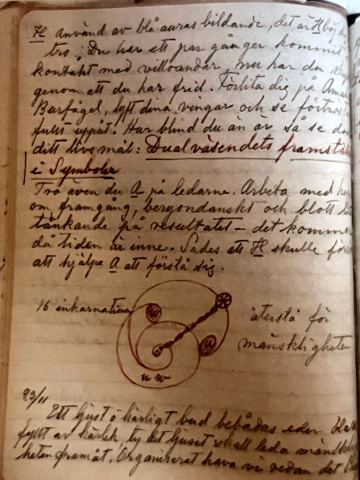 H Använd av blå auras bildande, det är H
tro. Du har ett par gånger kommit
kontakt med villoandar, nu har du
genom att du har frid. Förlita dig på
Barfågel, lyft dina vingar och se förtrö
fullt uppåt. Har blind du än är så se du
ditt livsmål: Dualväsendets framstä
i Symboler
Tro även du A på ledarna. Arbeta med
om framgång, och blott
tänkande på resultatet – det komme
då tiden är inne. Sades att H skulle
att hjälpa A att förstå sig.
16 inkarnationer
återstå för
mänskligheten
w
u w
23/11
Ett ljust å härligt bud befådas eder
fyllt av kärlek, ty det ljuset skall leda mänsk
heten framåt. Organiserat hava vi redan det